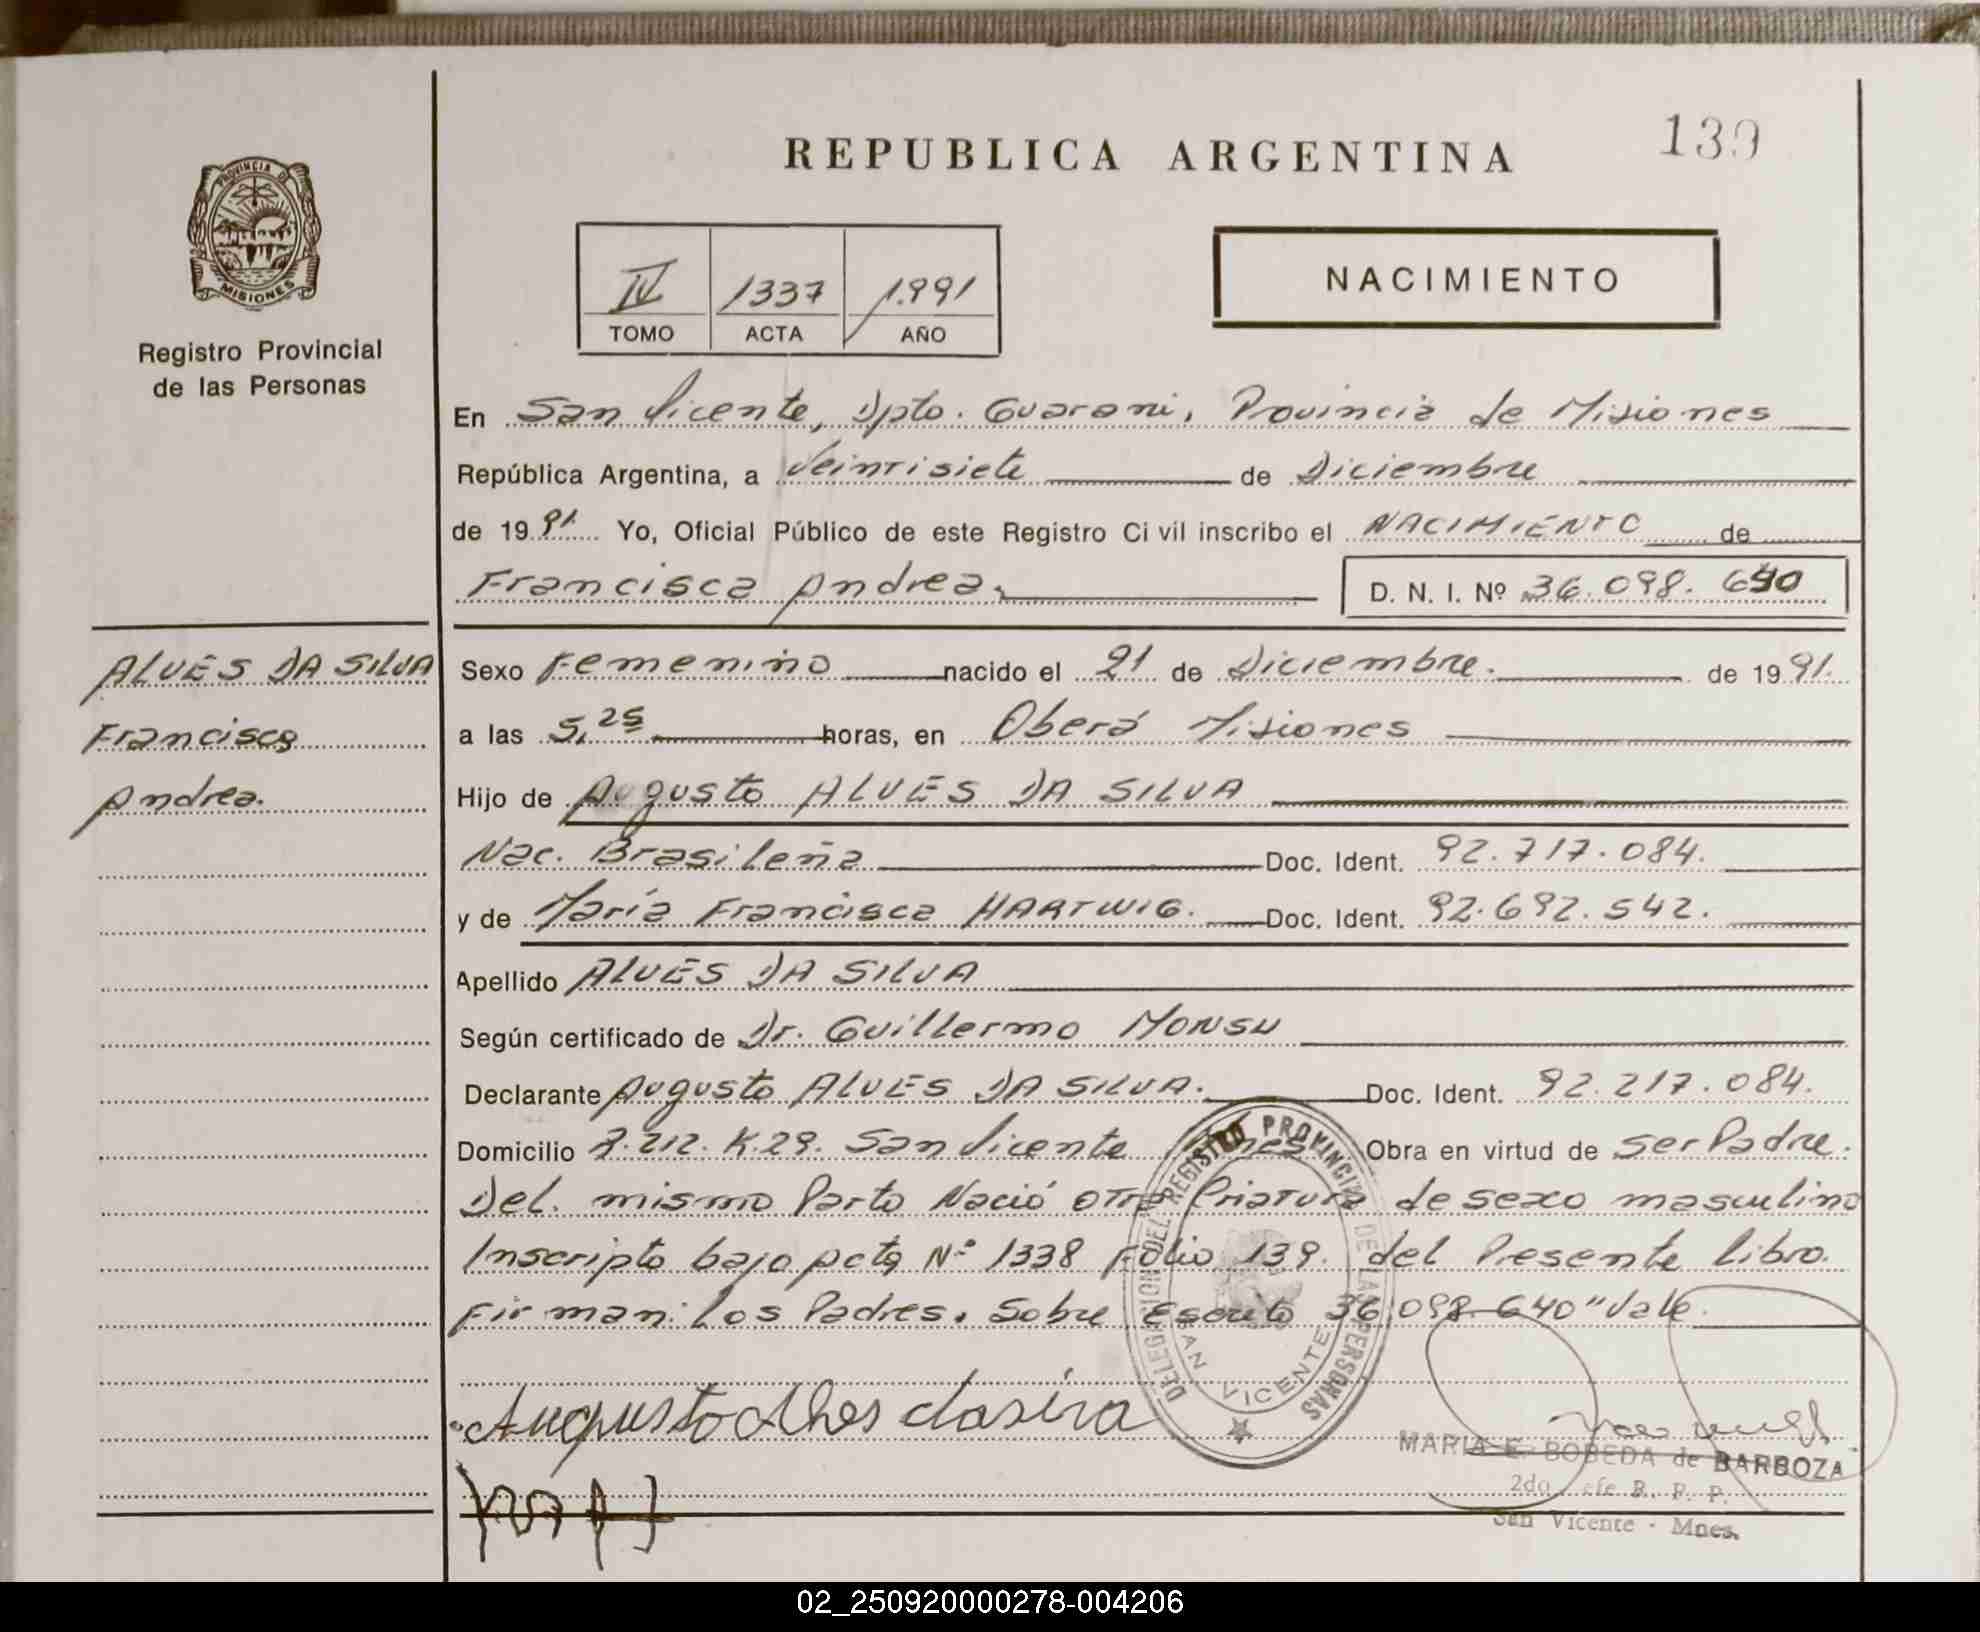 139
REPUBLICA ARGENTINA
PROVINCIA DE
MISIONES
Registro Provincial
de las Personas
IV 1337 1.991
TOMO ACTA AÑO
NACIMIENTO
En San Vicente, Dpto. Guarani, Provincia de Misiones
República Argentina, a Veintisiete de Diciembre
de 19 91 Yo, Oficial Público de este Registro Civil inscribo el NACIMIENTO de
Francisca Andrea. D. N. I. Nº 36.098.640
ALVES DA SILVA
Francisca
Andrea.
Sexo Femenino nacido el 21 de Diciembre. de 19 91.
a las 5,25 horas, en Oberá Misiones
Hijo de Augusto ALVES DA SILVA
Nac. Brasileña Doc. Ident. 92.717.084.
y de María Francisca HARTWIG. Doc. Ident. 92.692.542.
Apellido ALVES DA SILVA
Según certificado de Dr. Guillermo MONSU
Declarante Augusto ALVES DA SILVA. Doc. Ident. 92.217.084.
Domicilio R.212. K.29. San Vicente Mnes Obra en virtud de ser Padre.
Del. mismo Parto Nació otra Criatura de sexo masculino
Inscripto bajo acta Nº 1338 Folio 139. del Presente libro.
Firman: los Padres. Sobre Escrito 36.098.640" Vale
DELEGACION DEL REGISTRO PROVINCIAL DE LAS PERSONAS
SAN VICENTE
Augusto Alves dasiva
MARIA E. BOBEDA de BARBOZA
2do Jefe R. P. P.
San Vicente - Mnes.
02_250920000278-004206